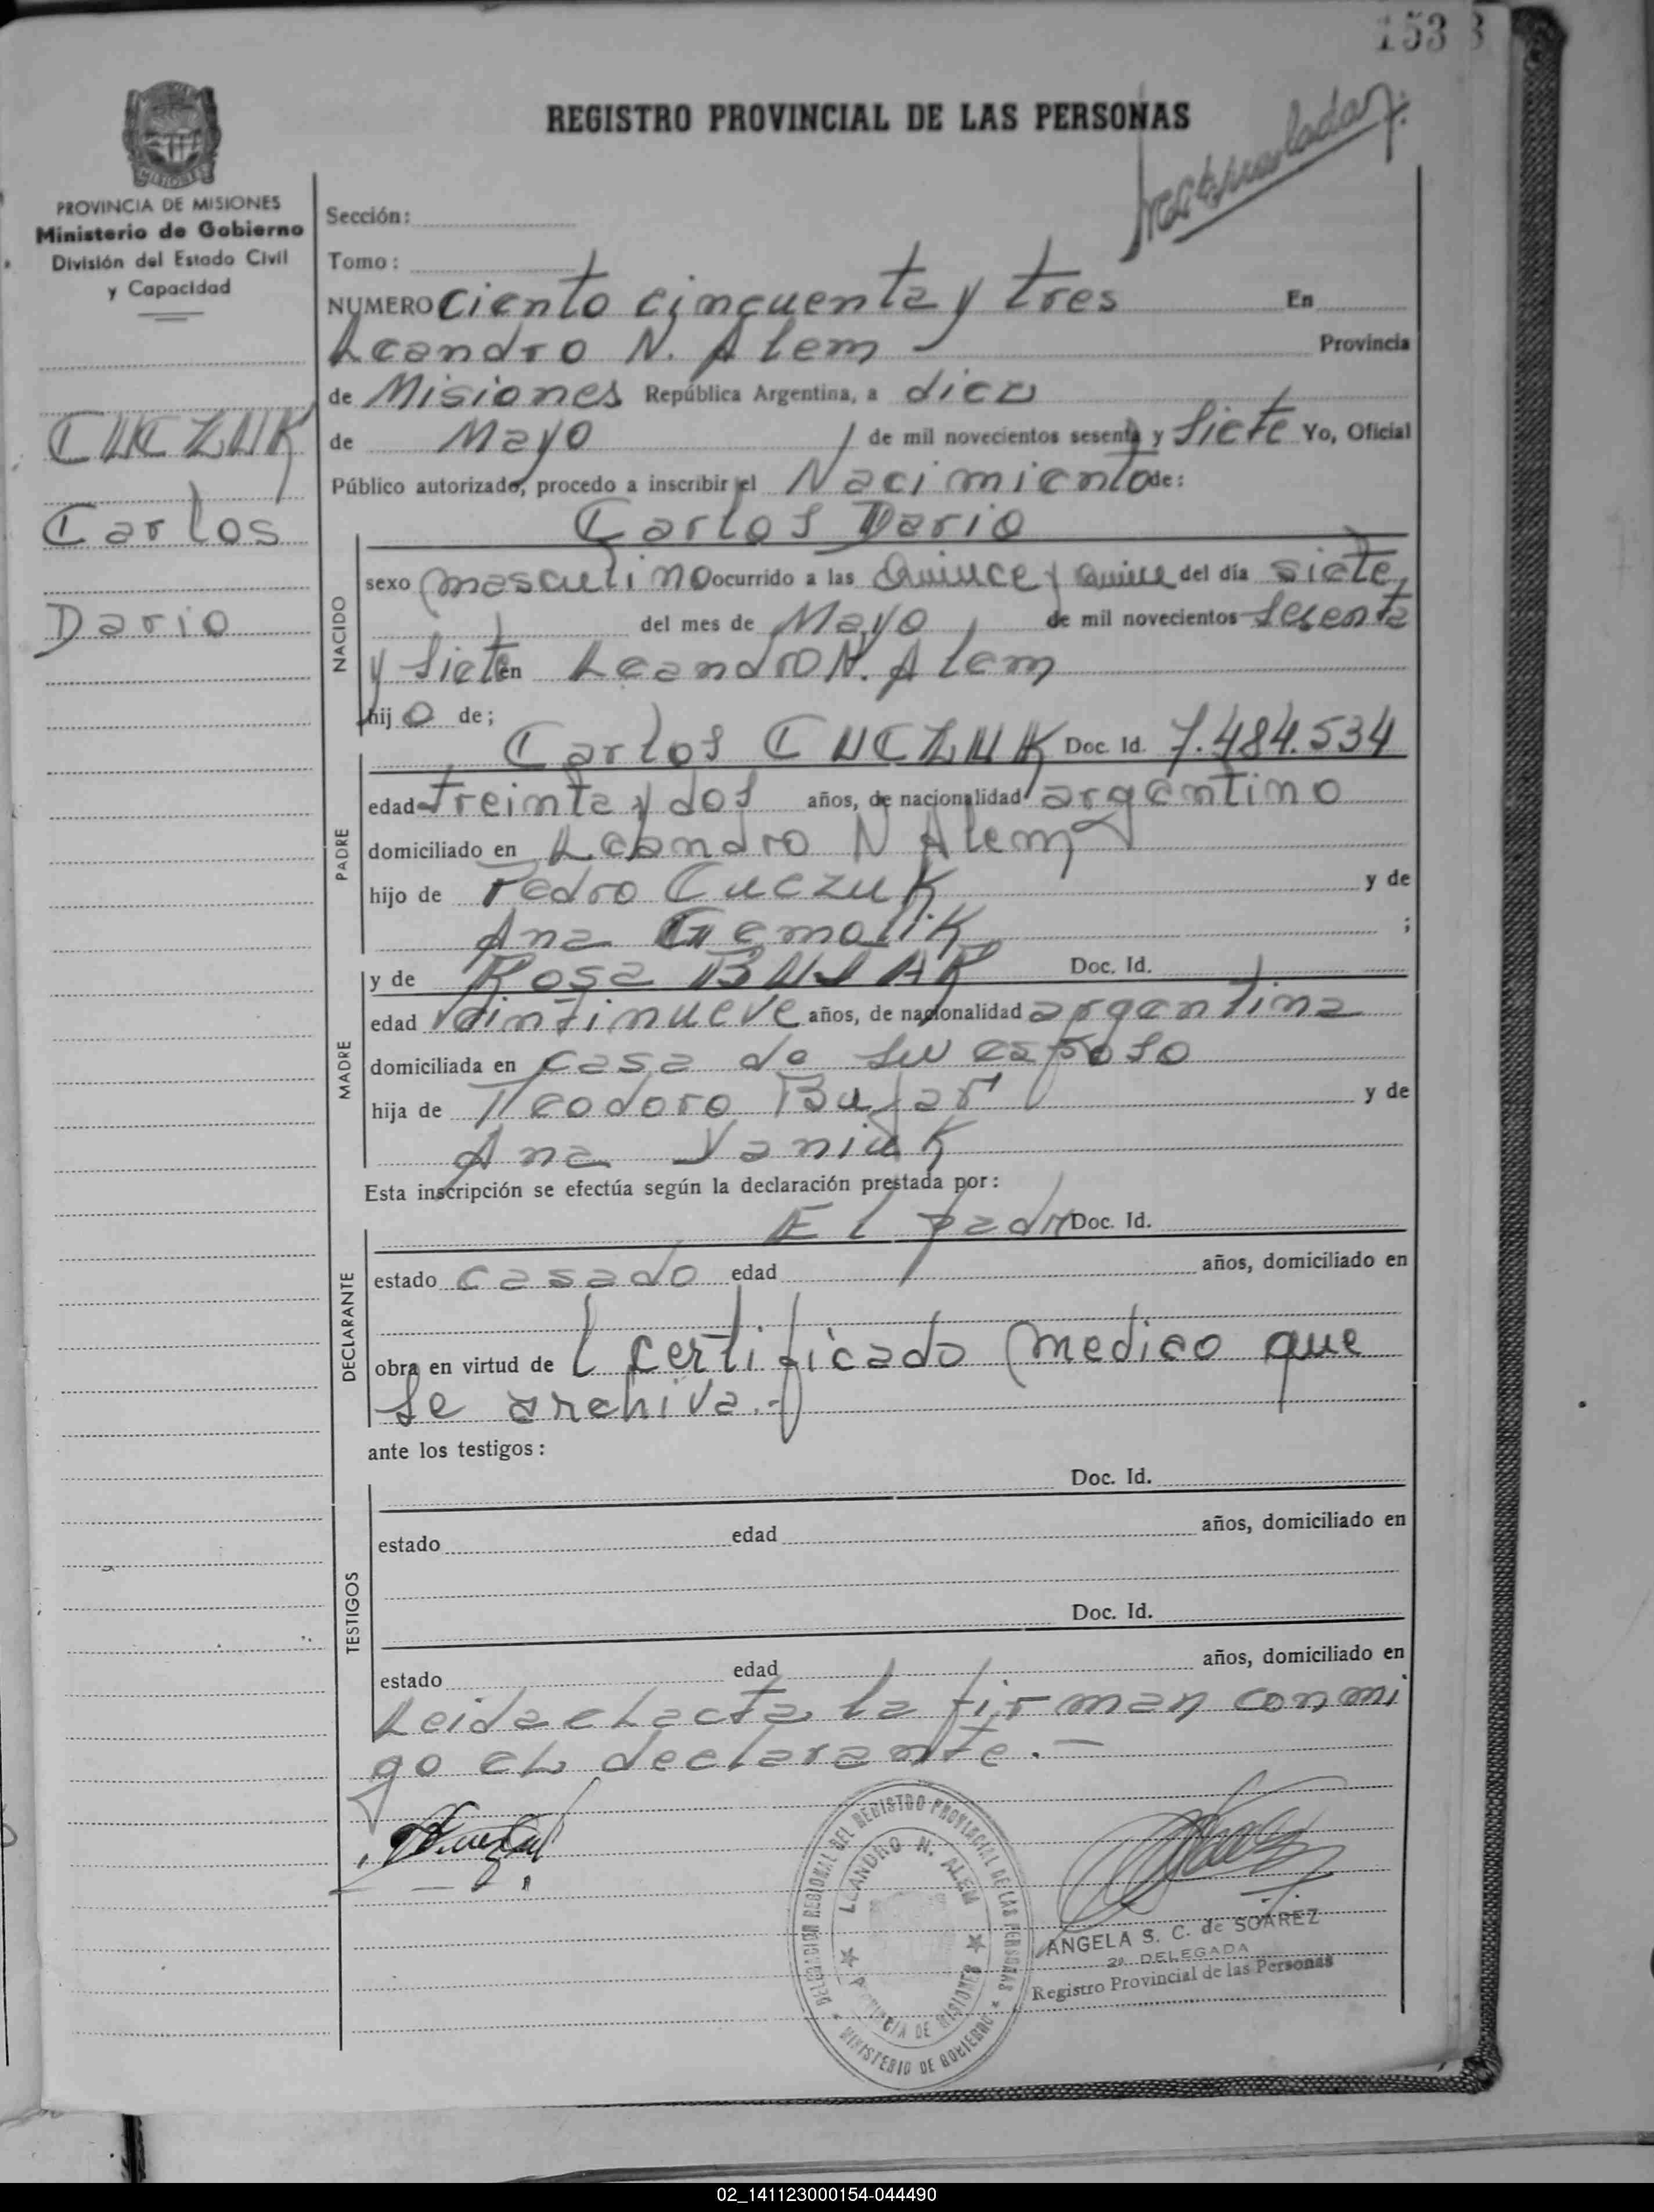 153
REGISTRO PROVINCIAL DE LAS PERSONAS
MISIONES
PROVINCIA DE MISIONES
Ministerio de Gobierno
División del Estado Civil
y Capacidad
CUCZUK
Carlos
Dario
Sección:
Tomo:
NUMERO ciento cincuenta y tres En
Leandro N. Alem Provincia
de Misiones República Argentina, a diez
de Mayo de mil novecientos sesenta y siete Yo, Oficial
Público autorizado, procedo a inscribir el Nacimiento de:
Carlos Dario
NACIDO
sexo masculino ocurrido a las Quince y quince del día siete
del mes de Mayo de mil novecientos sesenta
y siete en Leandro N. Alem
hijo de;
PADRE
Carlos CUCZUK Doc. Id. 7.484.534
edad treinta y dos años, de nacionalidad argentino
domiciliado en Leandro N Alem
hijo de Pedro Cuczuk y de
Ana ;
MADRE
y de Rosa BUJAR Doc. Id.
edad veintinueve años, de nacionalidad argentina
domiciliada en casa de su esposo
hija de Teodoro Bujar y de
Ana Yaniuk
Esta inscripción se efectúa según la declaración prestada por:
DECLARANTE
El padre Doc. Id.
estado casado edad años, domiciliado en
obra en virtud de certificado medico que
se archiva.-
ante los testigos:
TESTIGOS
Doc. Id.
estado edad años, domiciliado en
Doc. Id.
estado edad años, domiciliado en
Leida el acta la firman conmi
go el declarante.-
DELEGACION REGIONAL DEL REGISTRO PROVINCIAL DE LAS PERSONAS
LEANDRO N. ALEM
PROVINCIA DE MISIONES
MINISTERIO DE GOBIERNO
ANGELA S. C. de SOAREZ
2a. DELEGADA
Registro Provincial de las Personas
02_141123000154-044490